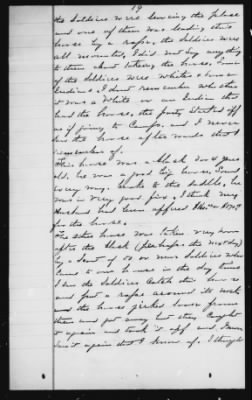 19
the Soldiers were leaving the place
and one of them was leading this
horse by a rope, the Soldiers were
all mounted, I did not say anything
to them about taking the horse, Some
of the Soldiers were Whites & Some
Indians. I dont remember whether
it was a White or an Indian that
had the horse, the party Started off
as if going to Camp, and I never
saw the horse after words that I
remember of.
This horse was a black 3 or 4 years
old, he was a good big horse, Sound
every way. broke to the Saddle, he
was in very good fix, I think my
Husband had been offered
for the horse.
The other horse was taken very soon
after the black (perhaps the next day)
by a Scout of 50 or more Soldiers who
Came to our house in the day time
I saw the Soldiers Catch this horse
and put a rope around its neck
and the horse jerked loose from
them and got away but they Caught
it again and took it off and I never
saw it again that I know of. I thought